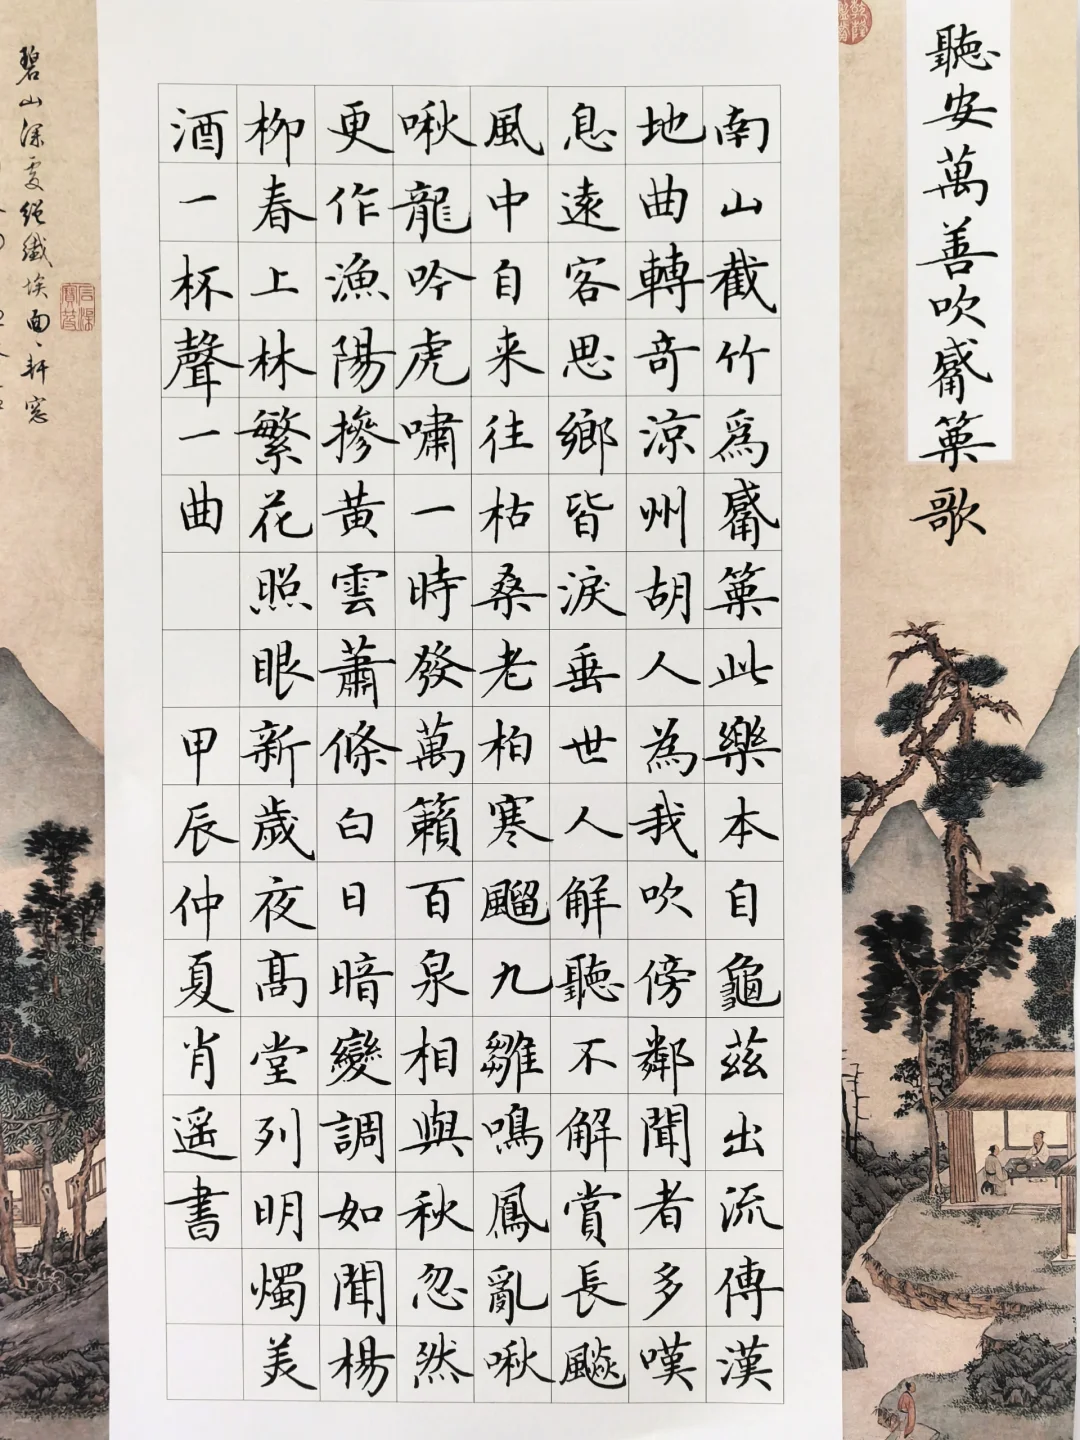 聽安萬善吹觱篥歌
南山截竹爲觱篥此樂本自龜茲出流傳漢
地曲轉奇涼州胡人為我吹傍鄰聞者多嘆
息遠客思鄉皆淚垂世人解聽不解賞長飈
風中自来往枯桑老柏寒飀九雛鳴鳳亂啾
啾龍吟虎嘯一時發萬籟百泉相與秋忽然
更作漁陽摻黃雲蕭條白日暗變調如聞楊
柳春上林繁花照眼新歲夜髙堂列明燭美
酒一杯聲一曲 甲辰仲夏肖遥書
碧山深處絕纖埃面、軒窓